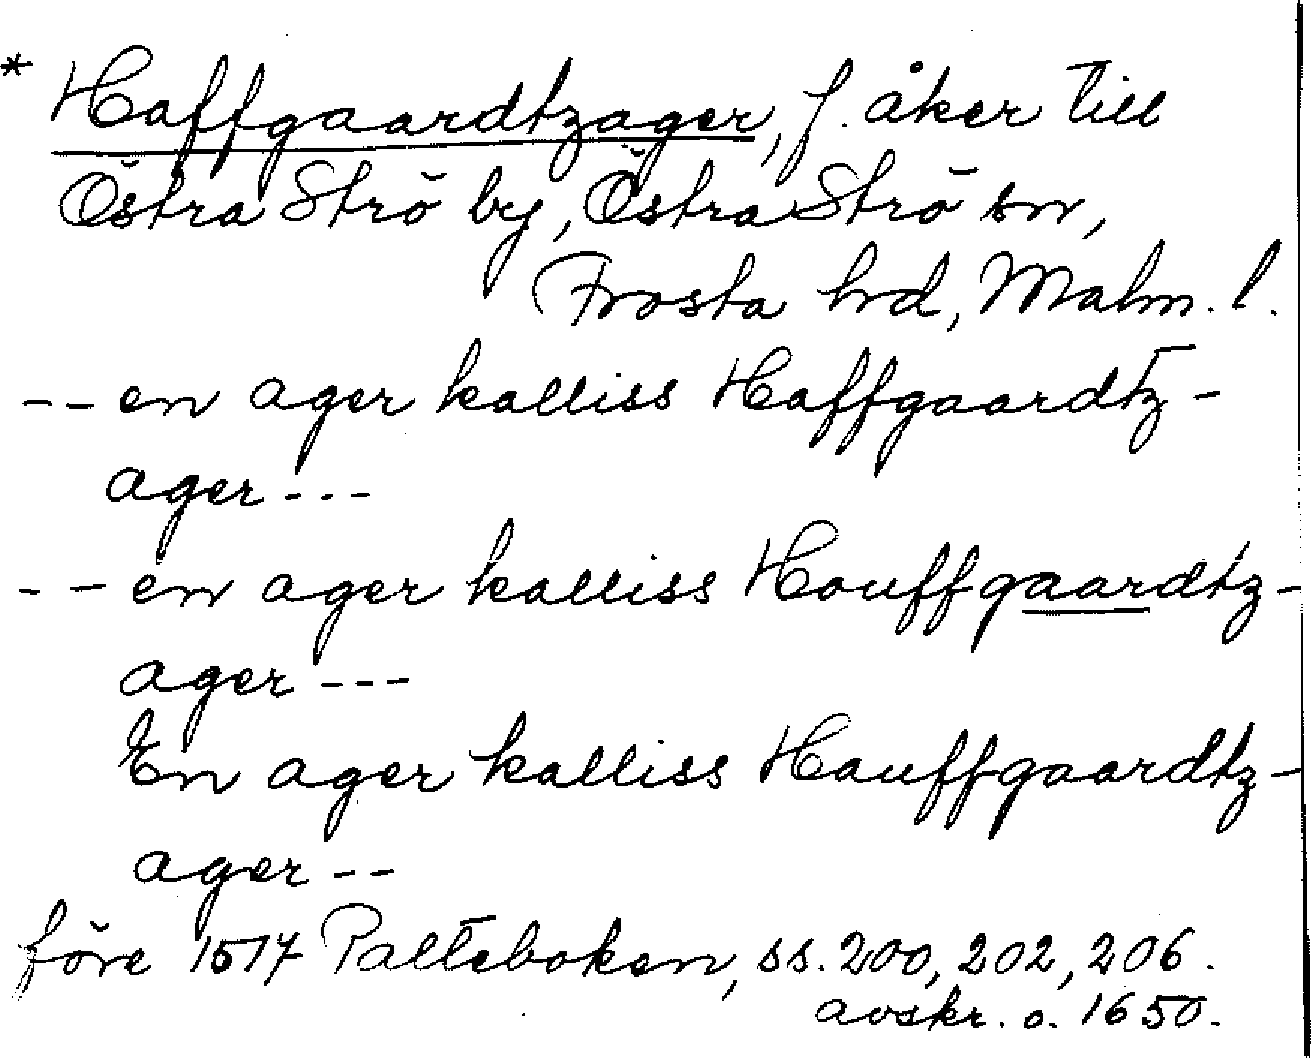 * Haffgaardtzager, f. åker till
Östra Strö by, Östra Strö sn,
Frosta hrd, Malm. l.
-- en ager kalliss Haffgaardtz-
ager ---
-- en ager kalliss Houffgaardtz-
ager ---
En ager kalliss Hauffgaardtz-
ager --
före 1517 Palteboken, ss. 200, 202, 206.
avskr. o. 1650.